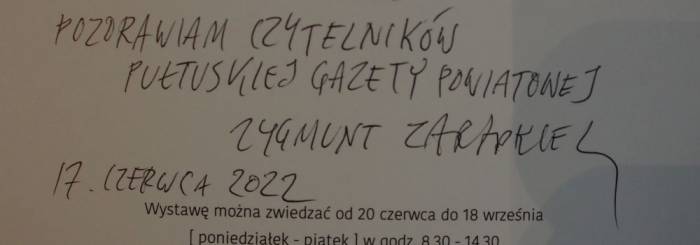 POZDRAWIAM CZYTELNIKÓW
PUŁTUSKIEJ GAZETY POWIATOWEJ
ZYGMUNT ZARADKIEL
17. CZERWCA 2022
Wystawę można zwiedzać od 20 czerwca do 18 września
[ poniedziałek - piątek ] w godz. 8.30 - 14.30